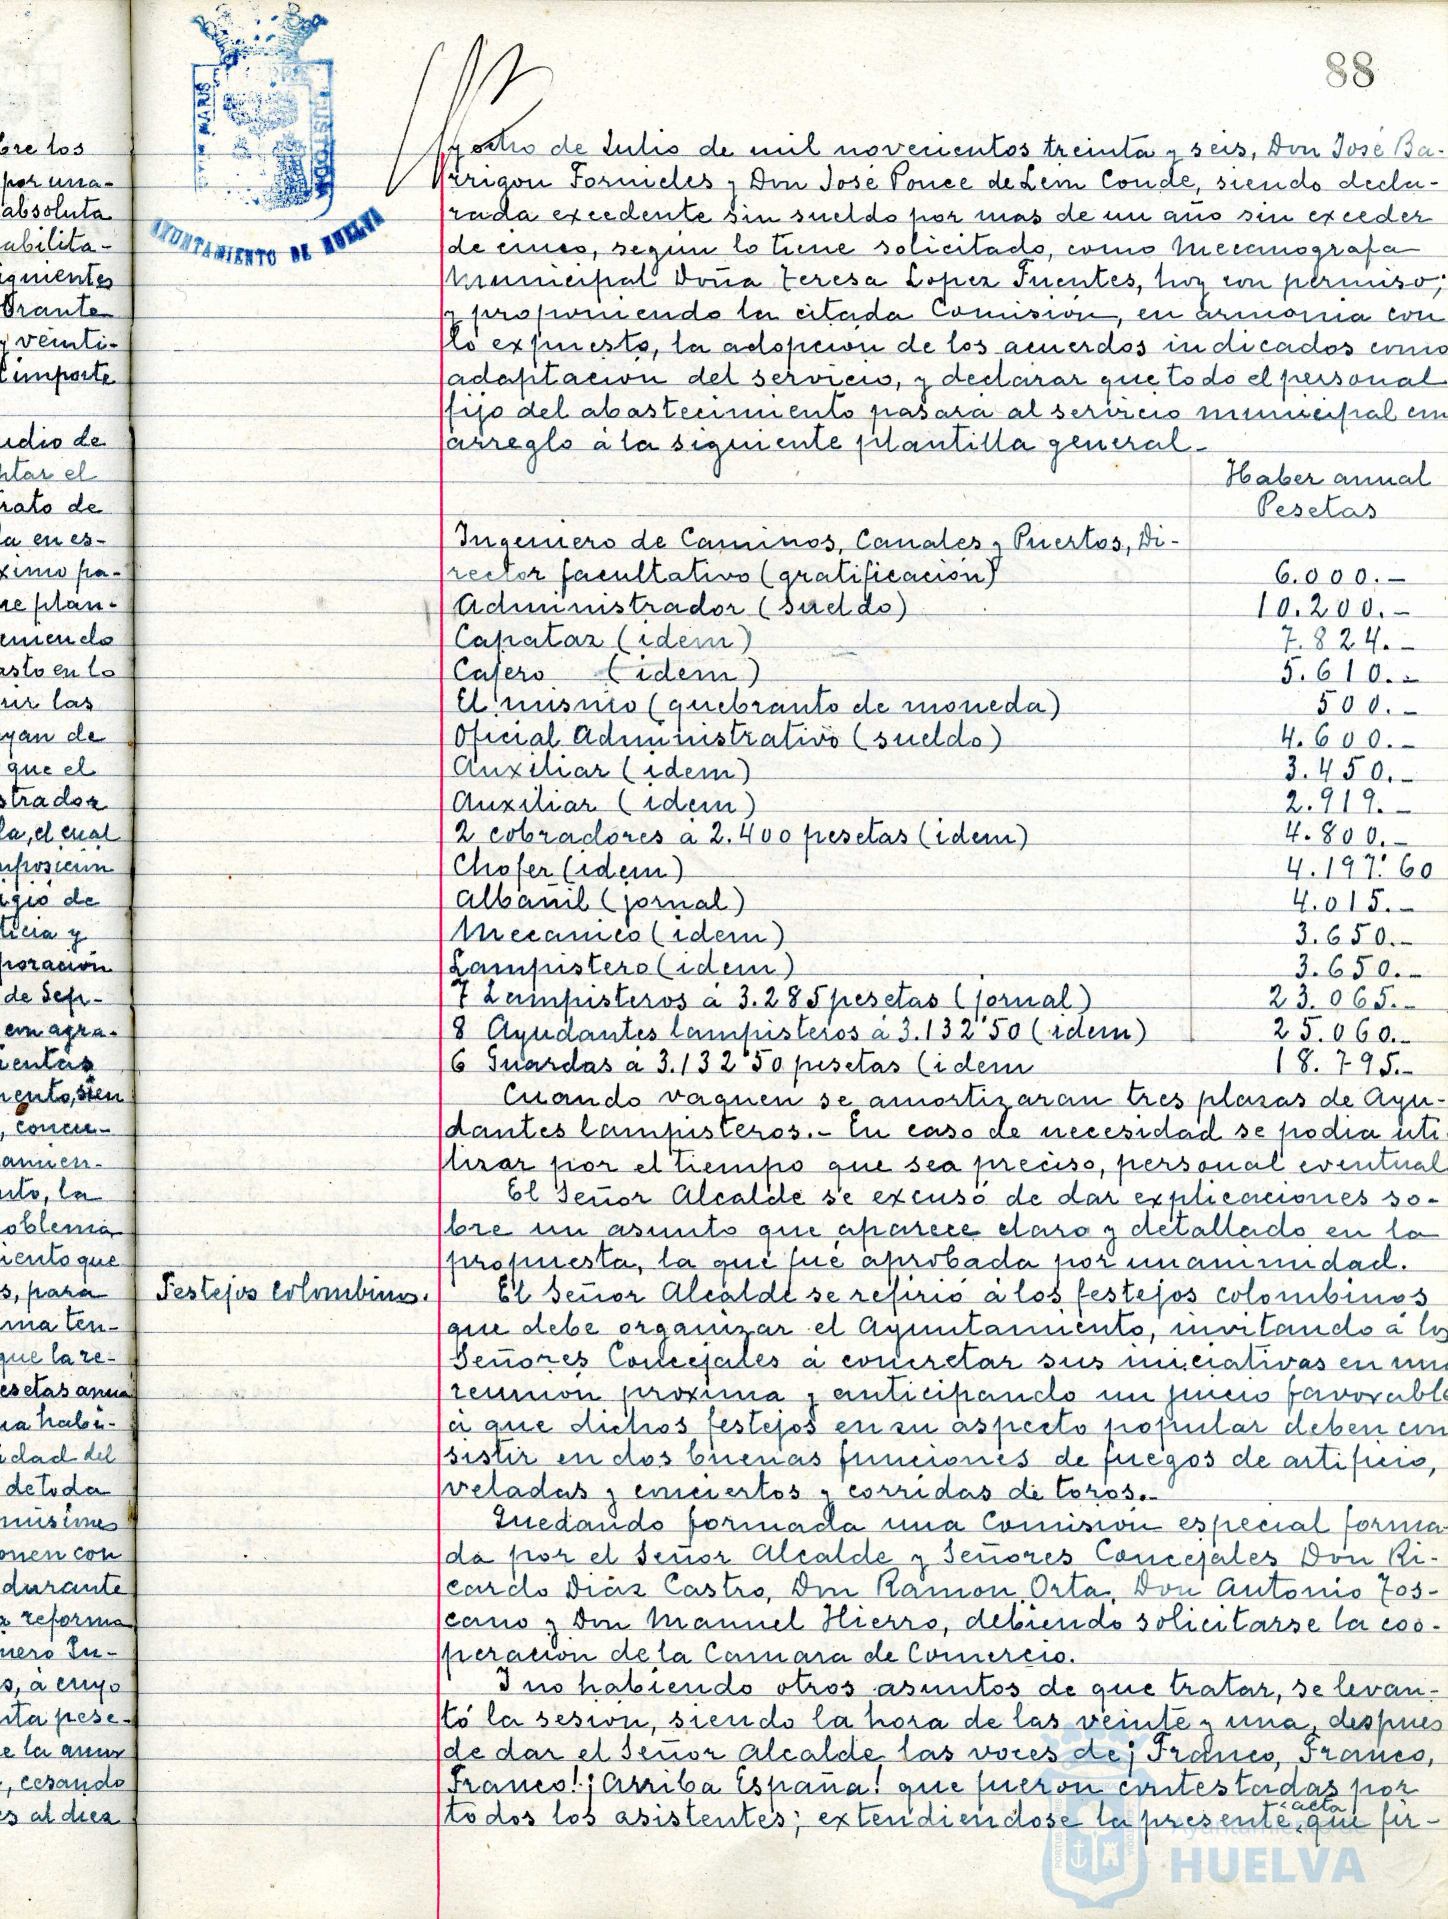 88
AYUNTAMIENTO DE HUELVA
y ocho de Julio de mil novecientos treinta y seis, Don José Ba-
rrigon Fornieles y Don José Ponce de León Conde, siendo decla-
rada excedente sin sueldo por mas de un año sin exceder
de cinco, según lo tiene solicitado, como Mecanografa
Municipal Doña Teresa Lopez Fuentes, hoy con permiso;
y proponiendo la citada Comisión, en armonia con
lo expuesto, la adopción de los acuerdos indicados como
adaptación del servicio, y declarar que todo el personal
fijo del abastecimiento pasará al servicio municipal con
arreglo á la siguiente plantilla general.-
Haber anual
Pesetas
Ingeniero de Caminos, Canales y Puertos, Di-
rector facultativo (gratificación) 6.000.-
Administrador (sueldo) 10.200.-
Capataz (idem) 7.824.-
Cajero (idem) 5.610.-
El mismo (quebranto de moneda) 500.-
Oficial Administrativo (sueldo) 4.600.-
Auxiliar (idem) 3.450.-
Auxiliar (idem) 2.919.-
2 cobradores á 2.400 pesetas (idem) 4.800.-
Chofer (idem) 4.197'60
Albañil (jornal) 4.015.-
Mecanico (idem) 3.650.-
Lampistero (idem) 3.650.-
7 Lampisteros á 3.285 pesetas (jornal) 23.065.-
8 Ayudantes lampisteros á 3.132'50 (idem) 25.060.-
6 Guardas á 3.132'50 pesetas (idem 18.795.-
Cuando vaquen se amortizaran tres plazas de Ayu-
dantes lampisteros.- En caso de necesidad se podia uti-
lizar por el tiempo que sea preciso, personal eventual
El Señor Alcalde se excusó de dar explicaciones so-
bre un asunto que aparece claro y detallado en la
propuesta, la que fué aprobada por unanimidad.
Festejos colombinos.
El Señor Alcalde se refirió á los festejos colombinos
que debe organizar el Ayuntamiento, invitando á los
Señores Concejales á concretar sus iniciativas en una
reunión proxima y anticipando un juicio favorable
á que dichos festejos en su aspecto popular deben con
sistir en dos buenas funciones de fuegos de artificio,
veladas y conciertos y corridas de toros.-
Quedando formada una Comisión especial forma-
da por el Señor Alcalde y Señores Concejales Don Ri-
cardo Diáz Castro, Don Ramon Orta, Don Antonio Tos-
cano y Don Manuel Hierro, debiendo solicitarse la coo-
peración de la Camara de Comercio.
Y no habiendo otros asuntos de que tratar, se levan-
tó la sesión, siendo la hora de las veinte y una, despues
de dar el Señor Alcalde las voces de ¡Franco, Franco,
Franco! ¡Arriba España! que fueron contestadas por
todos los asistentes; extendiendose la presente acta que fir-
Ayuntamiento de
HUELVA
bre los
por una-
absoluta
abilita-
iguientes
brante
y veinti-
l importe
udio de
ptar el
rato de
la en es-
ximo pa-
re plan-
eniendo
asto en lo
rir las
yan de
que el
strador
la, el cual
mposición
igió de
ticia y
poración
de Sep-
con agra-
ientas
mento, sien
, concu-
amien-
nto, la
oblema
iento que
s, para
ma ten-
que la re-
esetas anua
na habi-
idad del
de toda
misiones
onen con
durante
a reforma
nero In-
s, á cuyo
nta pese-
, cesando
es al diez